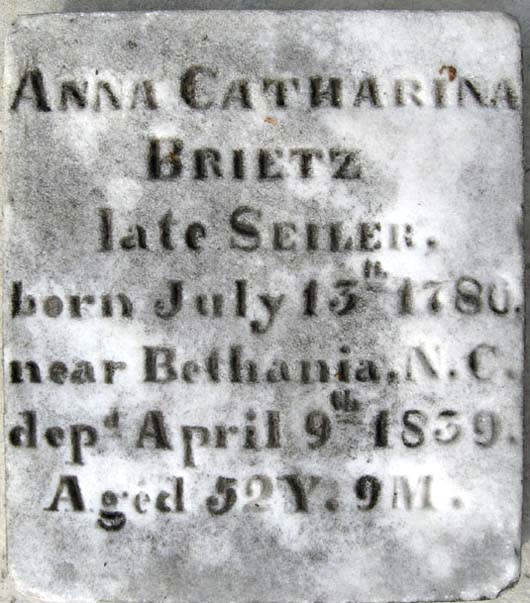 ANNA CATHARINA
BRIETZ
late SEILER.
born July 13th 1786.
near Bethania, N.C.
depd April 9th 1839.
Aged 52Y. 9M.